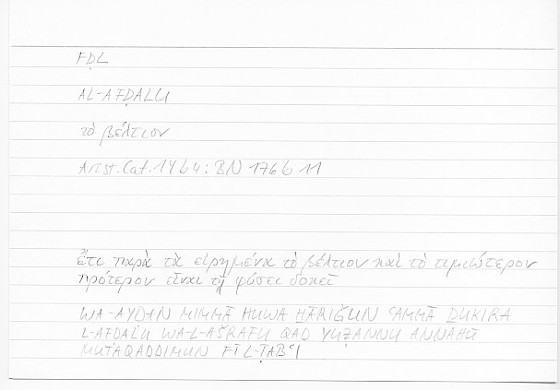 FḌL
AL-AFḌALU
τὸ βέλτιον
Arist. Cat. 14 b 4: BN 176 b 11
ἔτι παρὰ τὰ εἰρημένα τὸ βέλτιον καὶ τὸ τιμιώτερον
πρότερον εἶναι τῇ φύσει δοκεῖ
WA-AYḌAN MIMMĀ HUWA ḪĀRIǦUN ʿAMMĀ ḎUKIRA
L-AFḌALU WA-L-AŠRAFU QAD YUẒANNU ANNAHŪ
MUTAQADDIMUN FĪ L-ṬABʿI